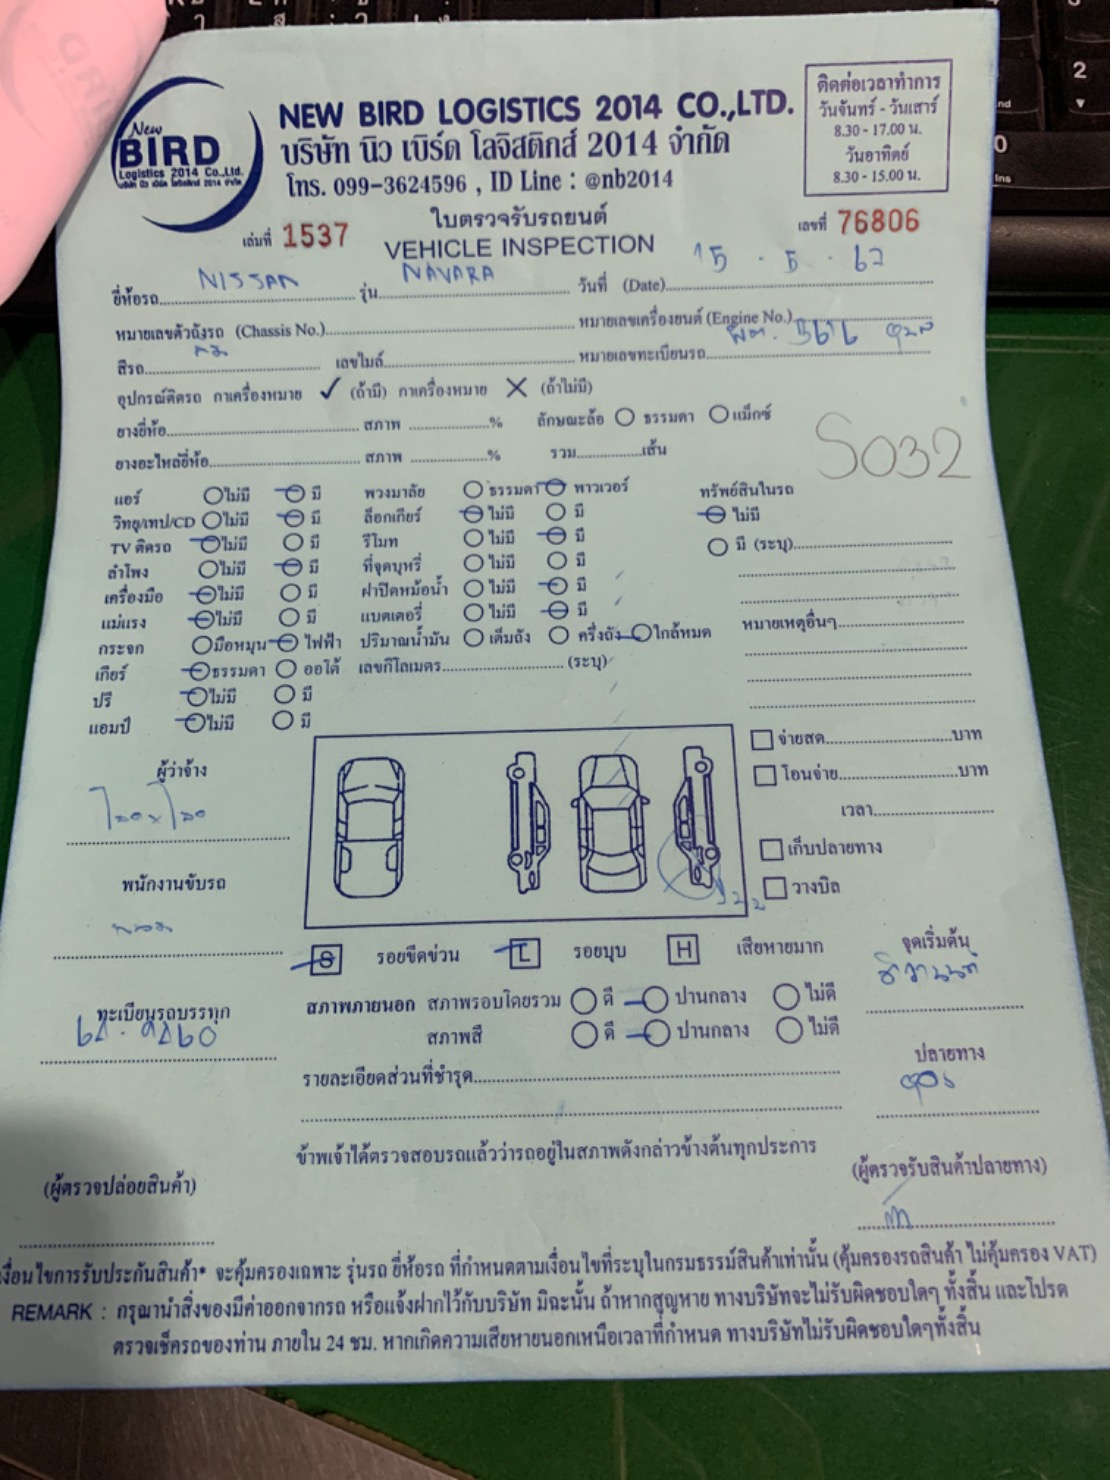 New
BIRD
Logistics 2014 Co.,Ltd.
บริษัท นิว เบิร์ด โลจิสติกส์ 2014 จำกัด
NEW BIRD LOGISTICS 2014 CO.,LTD.
บริษัท นิว เบิร์ด โลจิสติกส์ 2014 จำกัด
โทร. 099-3624596 , ID Line : @nb2014
ติดต่อเวลาทำการ
วันจันทร์ - วันเสาร์
8.30 - 17.00 น.
วันอาทิตย์
8.30 - 15.00 น.
เล่มที่ 1537
ใบตรวจรับรถยนต์
VEHICLE INSPECTION
เลขที่ 76806
ยี่ห้อรถ NISSAN รุ่น NAVARA วันที่ (Date) 15 . 5 . 62
หมายเลขตัวถังรถ (Chassis No.) หมายเลขเครื่องยนต์ (Engine No.)
สีรถ เลขไมล์ หมายเลขทะเบียนรถ
อุปกรณ์ติดรถ กาเครื่องหมาย ✓ (ถ้ามี) กาเครื่องหมาย ✕ (ถ้าไม่มี)
ยางยี่ห้อ สภาพ % ลักษณะล้อ ธรรมดา แม็กซ์
ยางอะไหล่ยี่ห้อ สภาพ % รวม เส้น
S032
แอร์ ไม่มี มี พวงมาลัย ธรรมดา พาวเวอร์ ทรัพย์สินในรถ
วิทยุ/เทป/CD ไม่มี มี ล็อกเกียร์ ไม่มี มี ไม่มี
TV ติดรถ ไม่มี มี รีโมท ไม่มี มี มี (ระบุ)
ลำโพง ไม่มี มี ที่จุดบุหรี่ ไม่มี มี
เครื่องมือ ไม่มี มี ฝาปิดหม้อน้ำ ไม่มี มี
แม่แรง ไม่มี มี แบตเตอรี่ ไม่มี มี หมายเหตุอื่นๆ
กระจก มือหมุน ไฟฟ้า ปริมาณน้ำมัน เต็มถัง ครึ่งถัง ใกล้หมด
เกียร์ ธรรมดา ออโต้ เลขกิโลเมตร (ระบุ)
ปรี ไม่มี มี
แอมป์ ไม่มี มี
ผู้ว่าจ้าง
พนักงานขับรถ
ทะเบียนรถบรรทุก
จ่ายสด บาท
โอนจ่าย บาท
เวลา
เก็บปลายทาง
วางบิล
S รอยขีดข่วน L รอยบุบ H เสียหายมาก
จุดเริ่มต้น
สภาพภายนอก สภาพรอบโดยรวม ดี ปานกลาง ไม่ดี
สภาพสี ดี ปานกลาง ไม่ดี
ปลายทาง
รายละเอียดส่วนที่ชำรุด
ข้าพเจ้าได้ตรวจสอบรถแล้วว่ารถอยู่ในสภาพดังกล่าวข้างต้นทุกประการ
(ผู้ตรวจปล่อยสินค้า)
(ผู้ตรวจรับสินค้าปลายทาง)
เงื่อนไขการรับประกันสินค้า* จะคุ้มครองเฉพาะ รุ่นรถ ยี่ห้อรถ ที่กำหนดตามเงื่อนไขที่ระบุในกรมธรรม์สินค้าเท่านั้น (คุ้มครองรถสินค้า ไม่คุ้มครอง VAT)
REMARK : กรุณานำสิ่งของมีค่าออกจากรถ หรือแจ้งฝากไว้กับบริษัท มิฉะนั้น ถ้าหากสูญหาย ทางบริษัทจะไม่รับผิดชอบใดๆ ทั้งสิ้น และโปรด
ตรวจเช็ครถของท่าน ภายใน 24 ชม. หากเกิดความเสียหายนอกเหนือเวลาที่กำหนด ทางบริษัทไม่รับผิดชอบใดๆทั้งสิ้น